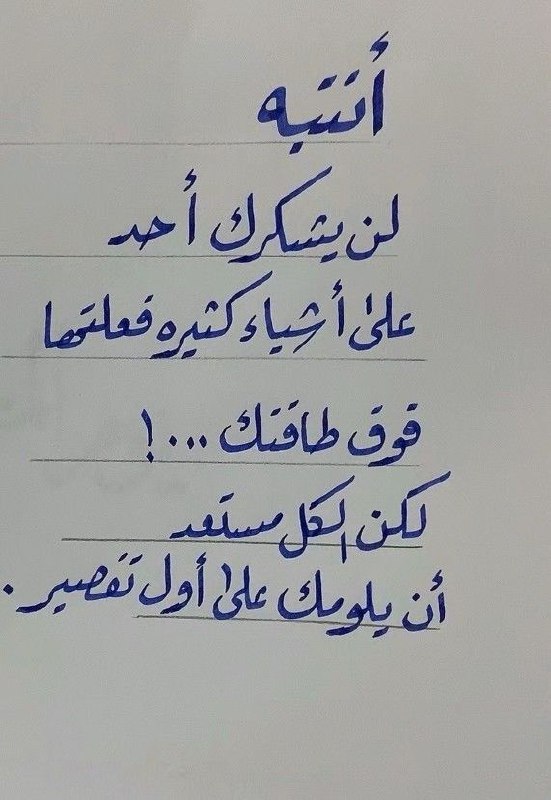 أنتبه
لن يشكرك أحد
على أشياء كثيره فعلتها
فوق طاقتك ...!
لكن الكل مستعد
أن يلومك على أول تقصير .